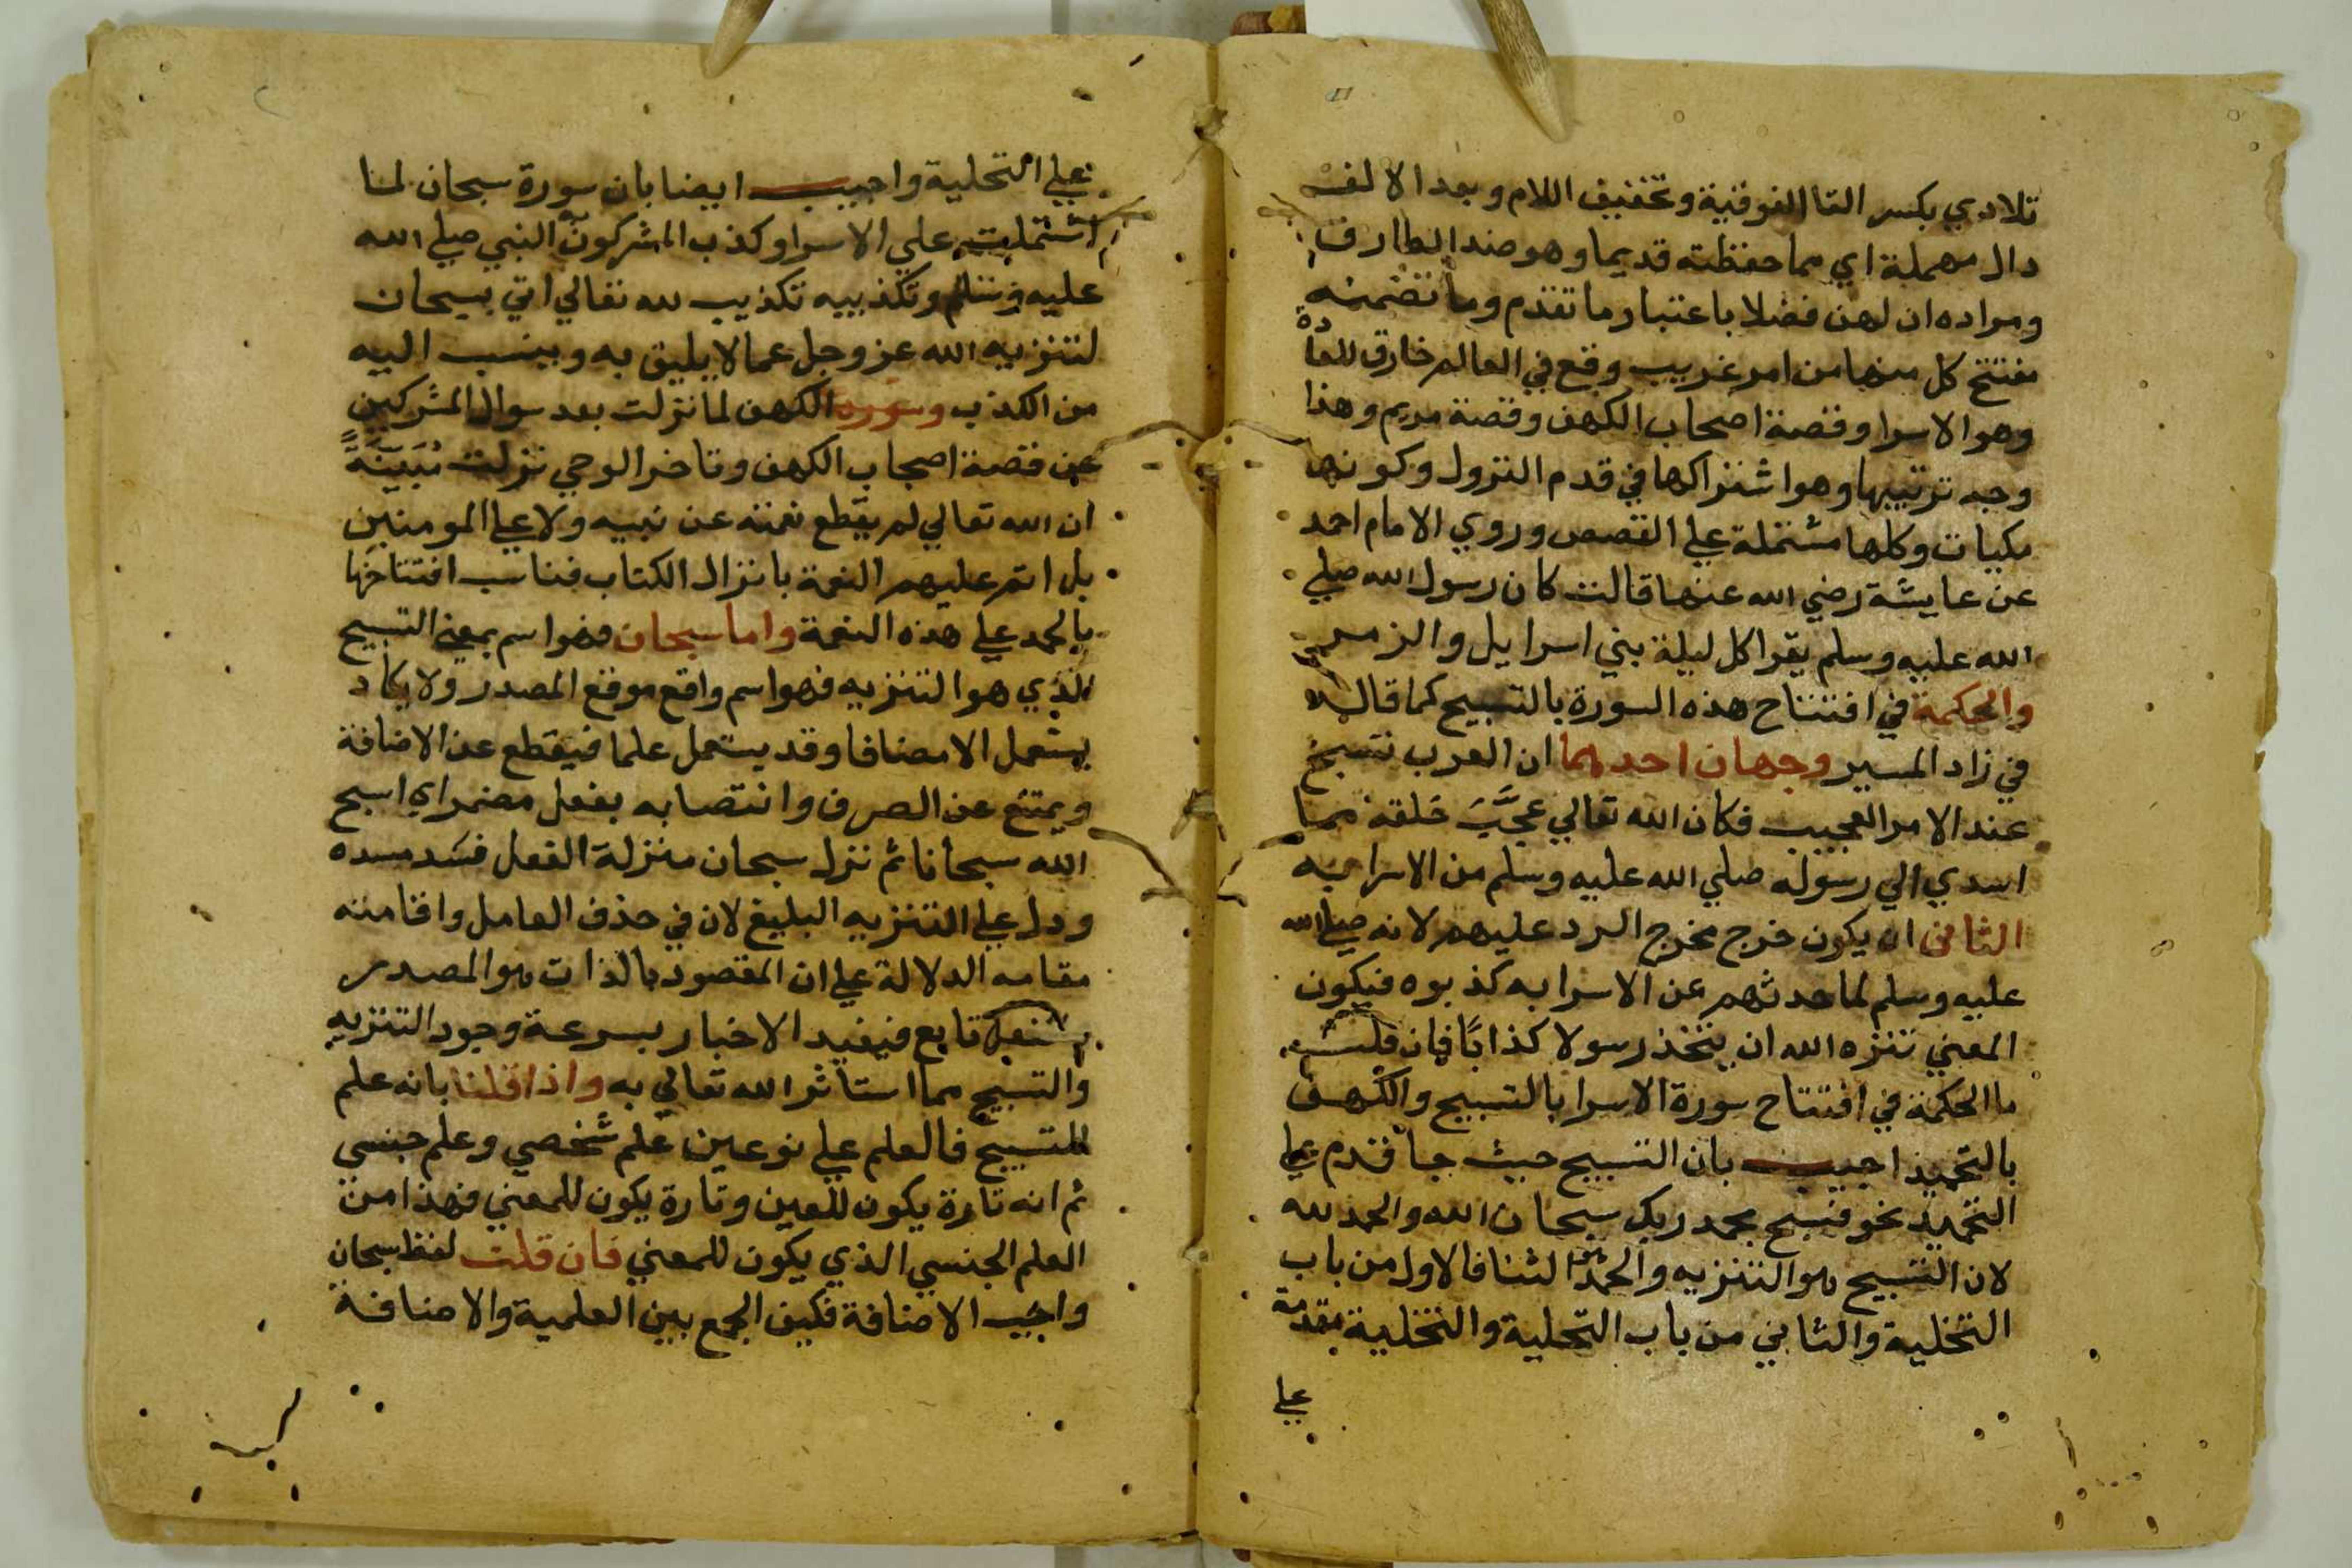 تلادي بكسر التا الفوقية وتخفيف اللام وبعد الالف
دال مهملة اي مما حفظته قديما وهو ضد الطارف
ومراده ان لهن فضلا باعتبار ما تقدم وما تضمنه
مفتتح كل منها من امر غريب وقع في العالم خارق للعادة
وهو الاسرا وقصة اصحاب الكهف وقصة مريم وهذا
وجه ترتيبها وهو اشتراكها في قدم النزول وكونها
مكيات وكلها مشتملة علي القصص وروي الامام احمد
عن عايشة رضي الله عنها قالت كان رسول الله صلي
الله عليه وسلم يقرا كل ليلة بني اسرايل والزمر
والحكمة في افتتاح هذه السورة بالتسبيح كما قاله
في زاد المسير وجهان احدهما ان العرب تسبح
عند الامر العجيب فكان الله تعالي عَجَّبَ خلقه مما
اسدي الي رسوله صلي الله عليه وسلم من الاسرا به
الثاني ان يكون خرج مخرج الرد عليهم لانه صلي الله
عليه وسلم لما حدثهم عن الاسرا به كذبوه فيكون
المعني تنزه الله ان يتخذ رسولا كذابًا فان قلت
ما الحكمة في افتتاح سورة الاسرا بالتسبيح والكهف
بالتحميد اجيب بان التسبيح حيث جا قدم علي
التحميد نحو فسبح بحمد ربك سبحان الله والحمد لله
لان التسبيح هو التنزيه والحمد الثنا فالاول من باب
التخلية والثاني من باب التحلية والتخلية مقدمة
علي
علي التحلية واجيب ايضا بان سورة سبحان لما
اشتملت علي الاسرا وكذب المشركون النبي صلي الله
عليه وسلم وتكذيبه تكذيب لله تعالي اتي بسبحان
لتنزيه الله عز وجل عما لا يليق به وينسب اليه
من الكذب وسورة الكهف لما نزلت بعد سوال المشركين
عن قصة اصحاب الكهف وتاخر الوحي نزلت مُبَيِّنَةً
ان الله تعالي لم يقطع نعمته عن نبيه ولا علي المومنين
بل اتم عليهم النعمة بانزال الكتاب فناسب افتتاحها
بالحمد علي هذه النعمة واما سبحان فهو اسم بمعني التسبيح
الذي هو التنزيه فهو اسم واقع موقع المصدر ولا يكاد
يستعمل الا مضافا وقد يستعمل علما فيقطع عن الاضافة
ويمتنع عن الصرف وانتصابه بفعل مضمر اي اسبح
الله سبحانا ثم نزل سبحان منزلة الفعل فسد مسده
ودل علي التنزيه البليغ لان في حذف العامل واقامته
مقامه الدلالة علي ان المقصود بالذات هو المصدر
والفعل تابع فيفيد الاخبار بسرعة وجود التنزيه
والتسبيح مما استاثر الله تعالي به واذا قلنا بانه علم
للتسبيح فالعلم علي نوعين علم شخصي وعلم جنسي
ثم انه تارة يكون للعين وتارة يكون للمعني فهذا من
العلم الجنسي الذي يكون للمعني فان قلت لفظ سبحان
واجب الاضافة فكيف الجمع بين العلمية والاضافة